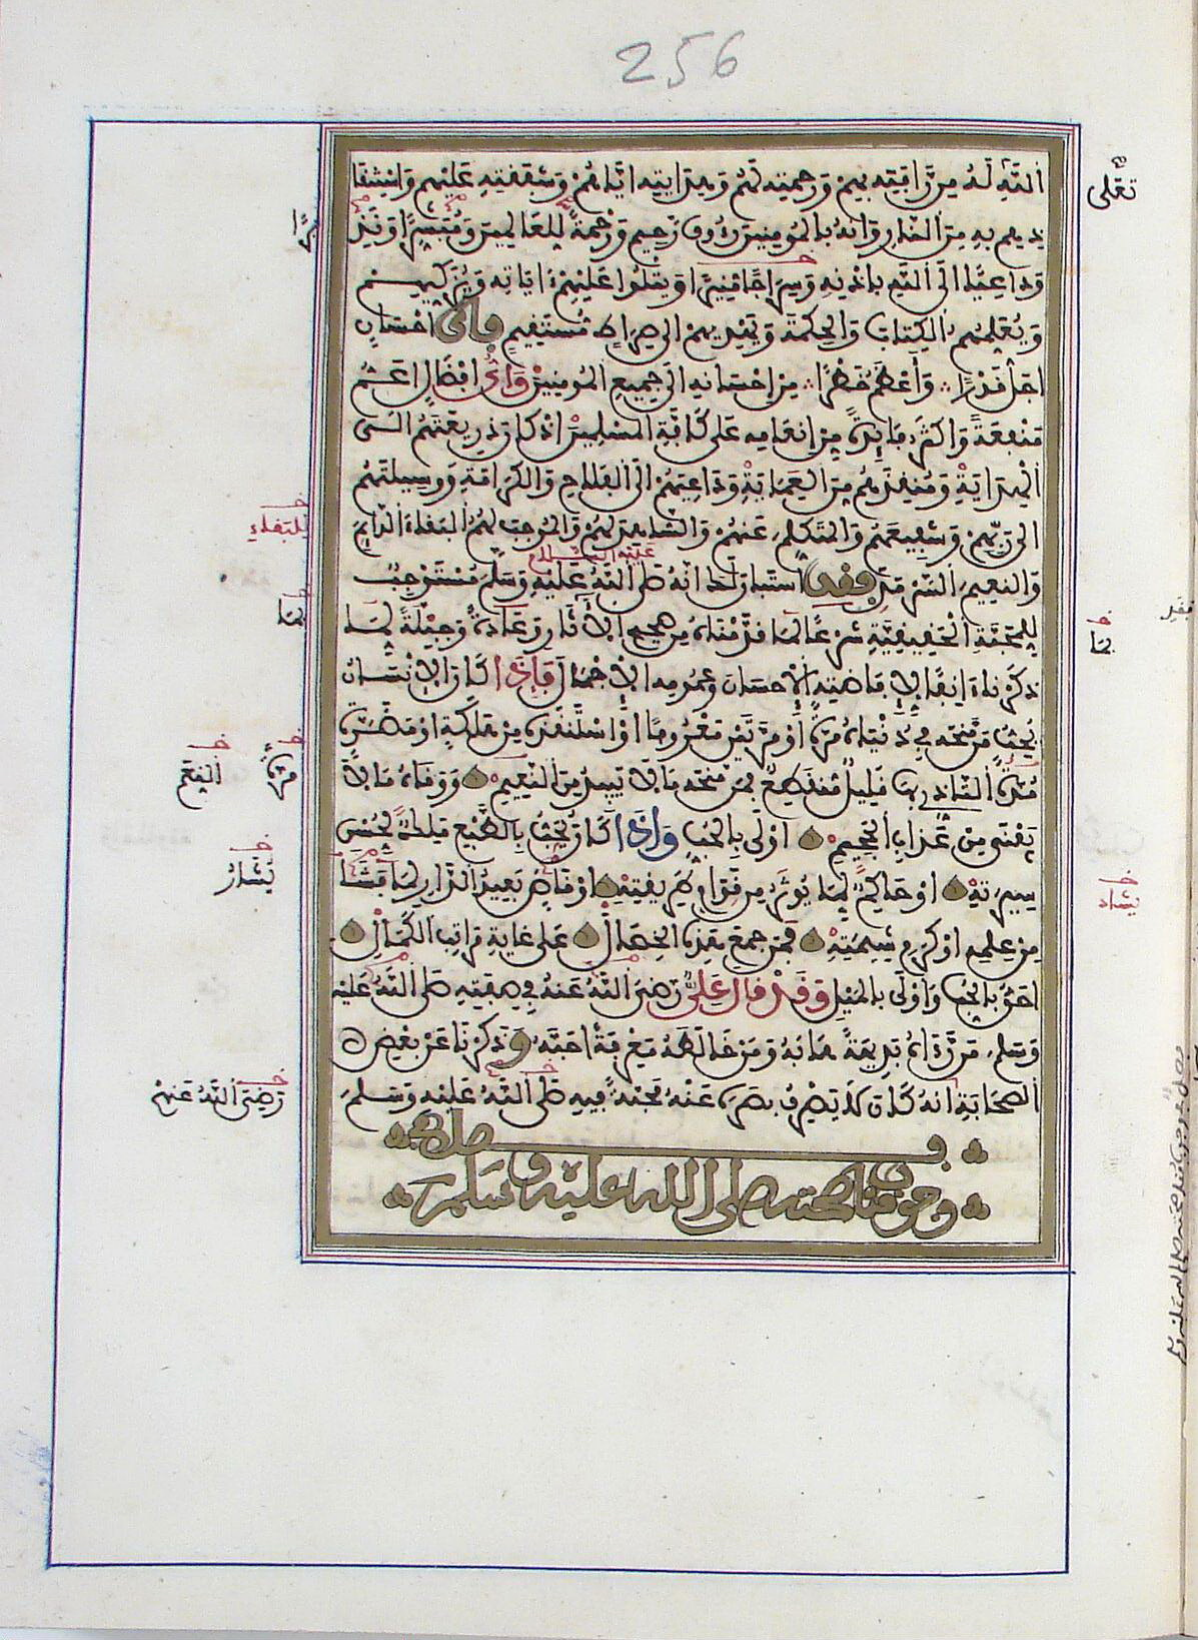 256
اللَّهِ لَهُ مِن رَّافَتِهِ بِهِمْ وَرَحْمَتِهِ لَهُمْ وَهِدَايَتِهِ إِيَّاهُمْ وَشَفَقَتِهِ عَلَيْهِمْ وَاسْتِنْقَا
تعلى
ذِهِم بِهِ مِنَ النَّارِ وَأَنَّهُ بِالْمُومِنِينَ رَءُوفٌ رَّحِيمٌ وَرَحْمَةً لِلْعَالَمِينَ وَمُبَشِّرًا وَنَذِ
يرًا
وَدَاعِيًا إِلَى اللَّهِ بِإِذْنِهِ وَسِرَاجًا مُّنِيرًا وَيَتْلُوا عَلَيْهِمُ ءَايَاتِهِ وَيُزَكِّيهِمْ
وَيُعَلِّمُهُمُ الْكِتَابَ وَالْحِكْمَةَ وَيَهْدِيهِمْ إِلَى صِرَاطٍ مُسْتَقِيمٍ فَأَيُّ إِحْسَانٍ
أَجَلُّ قَدْرًا وَأَعْظَمُ خَطَرًا مِنْ إِحْسَانِهِ إِلَى جَمِيعِ الْمُومِنِينَ وَأَيُّ إِفْضَالٍ أَعَمُّ
مَنْفَعَةً وَأَكْثَرُ فَايِدَةً مِنْ إِنْعَامِهِ عَلَى كَافَّةِ الْمُسْلِمِينَ إِذْ كَانَ ذَرِيعَتَهُمُ إِلَى
الْهِدَايَةِ وَمُنْقِذَهُمْ مِنَ الْعَمَايَةِ وَدَاعِيَهُمْ إِلَى الْفَلَاحِ وَالْكَرَامَةِ وَوَسِيلَتَهُمْ
إِلَى رَبِّهِمْ وَشَفِيعَهُمْ وَالْمُتَكَلِّمَ عَنْهُمْ وَالشَّاهِدَ لَهُمْ وَالْمُوجِبَ لَهُمُ الْبَقَاءَ الدَّايِمَ
للبقاء
وَالنَّعِيمَ السَّرْمَدَ فقد اسْتَبَانَ لَكَ أَنَّهُ صَلَّى اللَّهُ عَلَيْهِ وَسَلَّمَ مُسْتَوْجِبٌ
عليه السلام
لِلْمَحَبَّةِ الْحَقِيقِيَّةِ شَرْعًا لِمَا قَدَّمْنَاهُ مِنْ صَحِيحِ الْآثَارِ وَعَادَةً وَجِبِلَّةً لِمَا
بما
بما
ذَكَرْنَاهُ ءَانِفًا لِإِفَاضَتِهِ الْإِحْسَانَ وَعُمُومِهِ الْإِجْمَالَ فَإِذَا كَانَ الْإِنْسَانُ
يُحِبُّ مَنْ مَنَحَهُ فِي دُنْيَاهُ مَرَّةً أَوْ مَرَّتَيْنِ مَعْرُوفًا أَوِ اسْتَنْقَذَهُ مِنْ هَلَكَةٍ أَوْ مَضَرَّةٍ
مُدَّةُ التَّأَذِّي بِهَا قَلِيلٌ مُنْقَطِعٌ فَمَنْ مَنَحَهُ مَا لَا يَبِيدُ مِنَ النَّعِيمِ وَوَقَاهُ مَا لَا
مرة
يَفْنَى مِنْ عَذَابِ الْجَحِيمِ أَوْلَى بِالْحُبِّ وَإِذَا كَانَ يُحَبُّ بِالطَّبْعِ مَلِكٌ لِحُسْنِ
سِيرَتِهِ أَوْ حَاكِمٌ لِمَا يُوثَرُ مِنْ قِوَامِ طَرِيقَتِهِ أَوْ قَاصٌّ بَعِيدُ الدَّارِ لِمَا فَشَا
يُشَادُ
يشاد
مِنْ عِلْمِهِ أَوْ كَرَمِ شِيمَتِهِ فَمَنْ جَمَعَ هَذِهِ الْخِصَالَ عَلَى غَايَةِ مَرَاتِبِ الْكَمَالِ
أَحَقُّ بِالْحُبِّ وَأَوْلَى بِالْمَيْلِ وَقَدْ قَالَ عَلِيٌّ رَضِيَ اللَّهُ عَنْهُ فِي صِفَتِهِ صَلَّى اللَّهُ عَلَيْهِ
وَسَلَّمَ مَنْ رَّءَاهُ بَدِيهَةً هَابَهُ وَمَنْ خَالَطَهُ مَعْرِفَةً أَحَبَّهُ وَذَكَرْنَا عَنْ بَعْضِ
الصَّحَابَةِ أَنَّهُ كَانَ لَا يَصْرِفُ بَصَرَهُ عَنْهُ مَحَبَّةً فِيهِ صَلَّى اللَّهُ عَلَيْهِ وَسَلَّمَ
رَضِيَ اللَّهُ عَنْهُمْ
فصل في
وجوب مناصحته صلى الله عليه وسلم